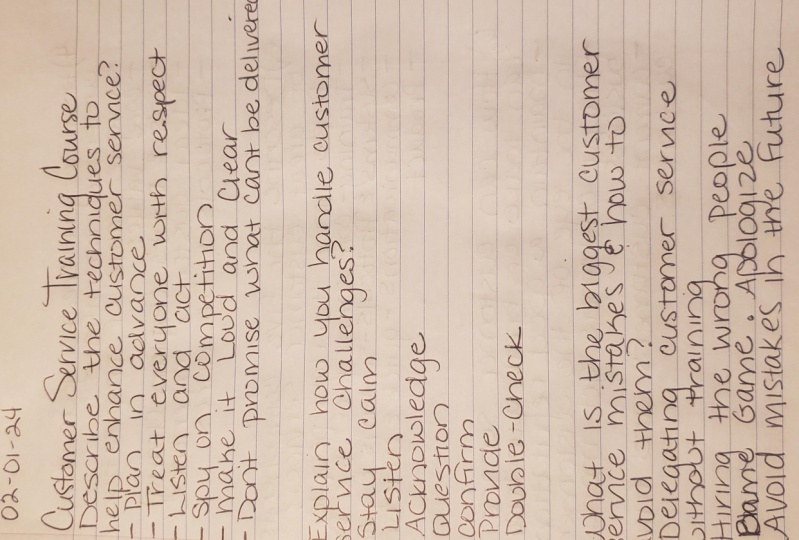 02-01-24
Customer Service Training Course
Describe the techniques to
help enhance customer service?
- Plan in advance
- Treat everyone with respect
- Listen and act
- Spy on competition
- make it Loud and Clear
- Don't promise what cant be delivered
Explain how you handle customer
service challenges?
Stay calm
Listen
Acknowledge
Question
Confirm
Provide
Double-Check
What is the biggest customer
service mistakes & how to
avoid them?
Delegating customer service
without training
Hiring the wrong people
Blame Game. Apologize
Avoid mistakes in the future